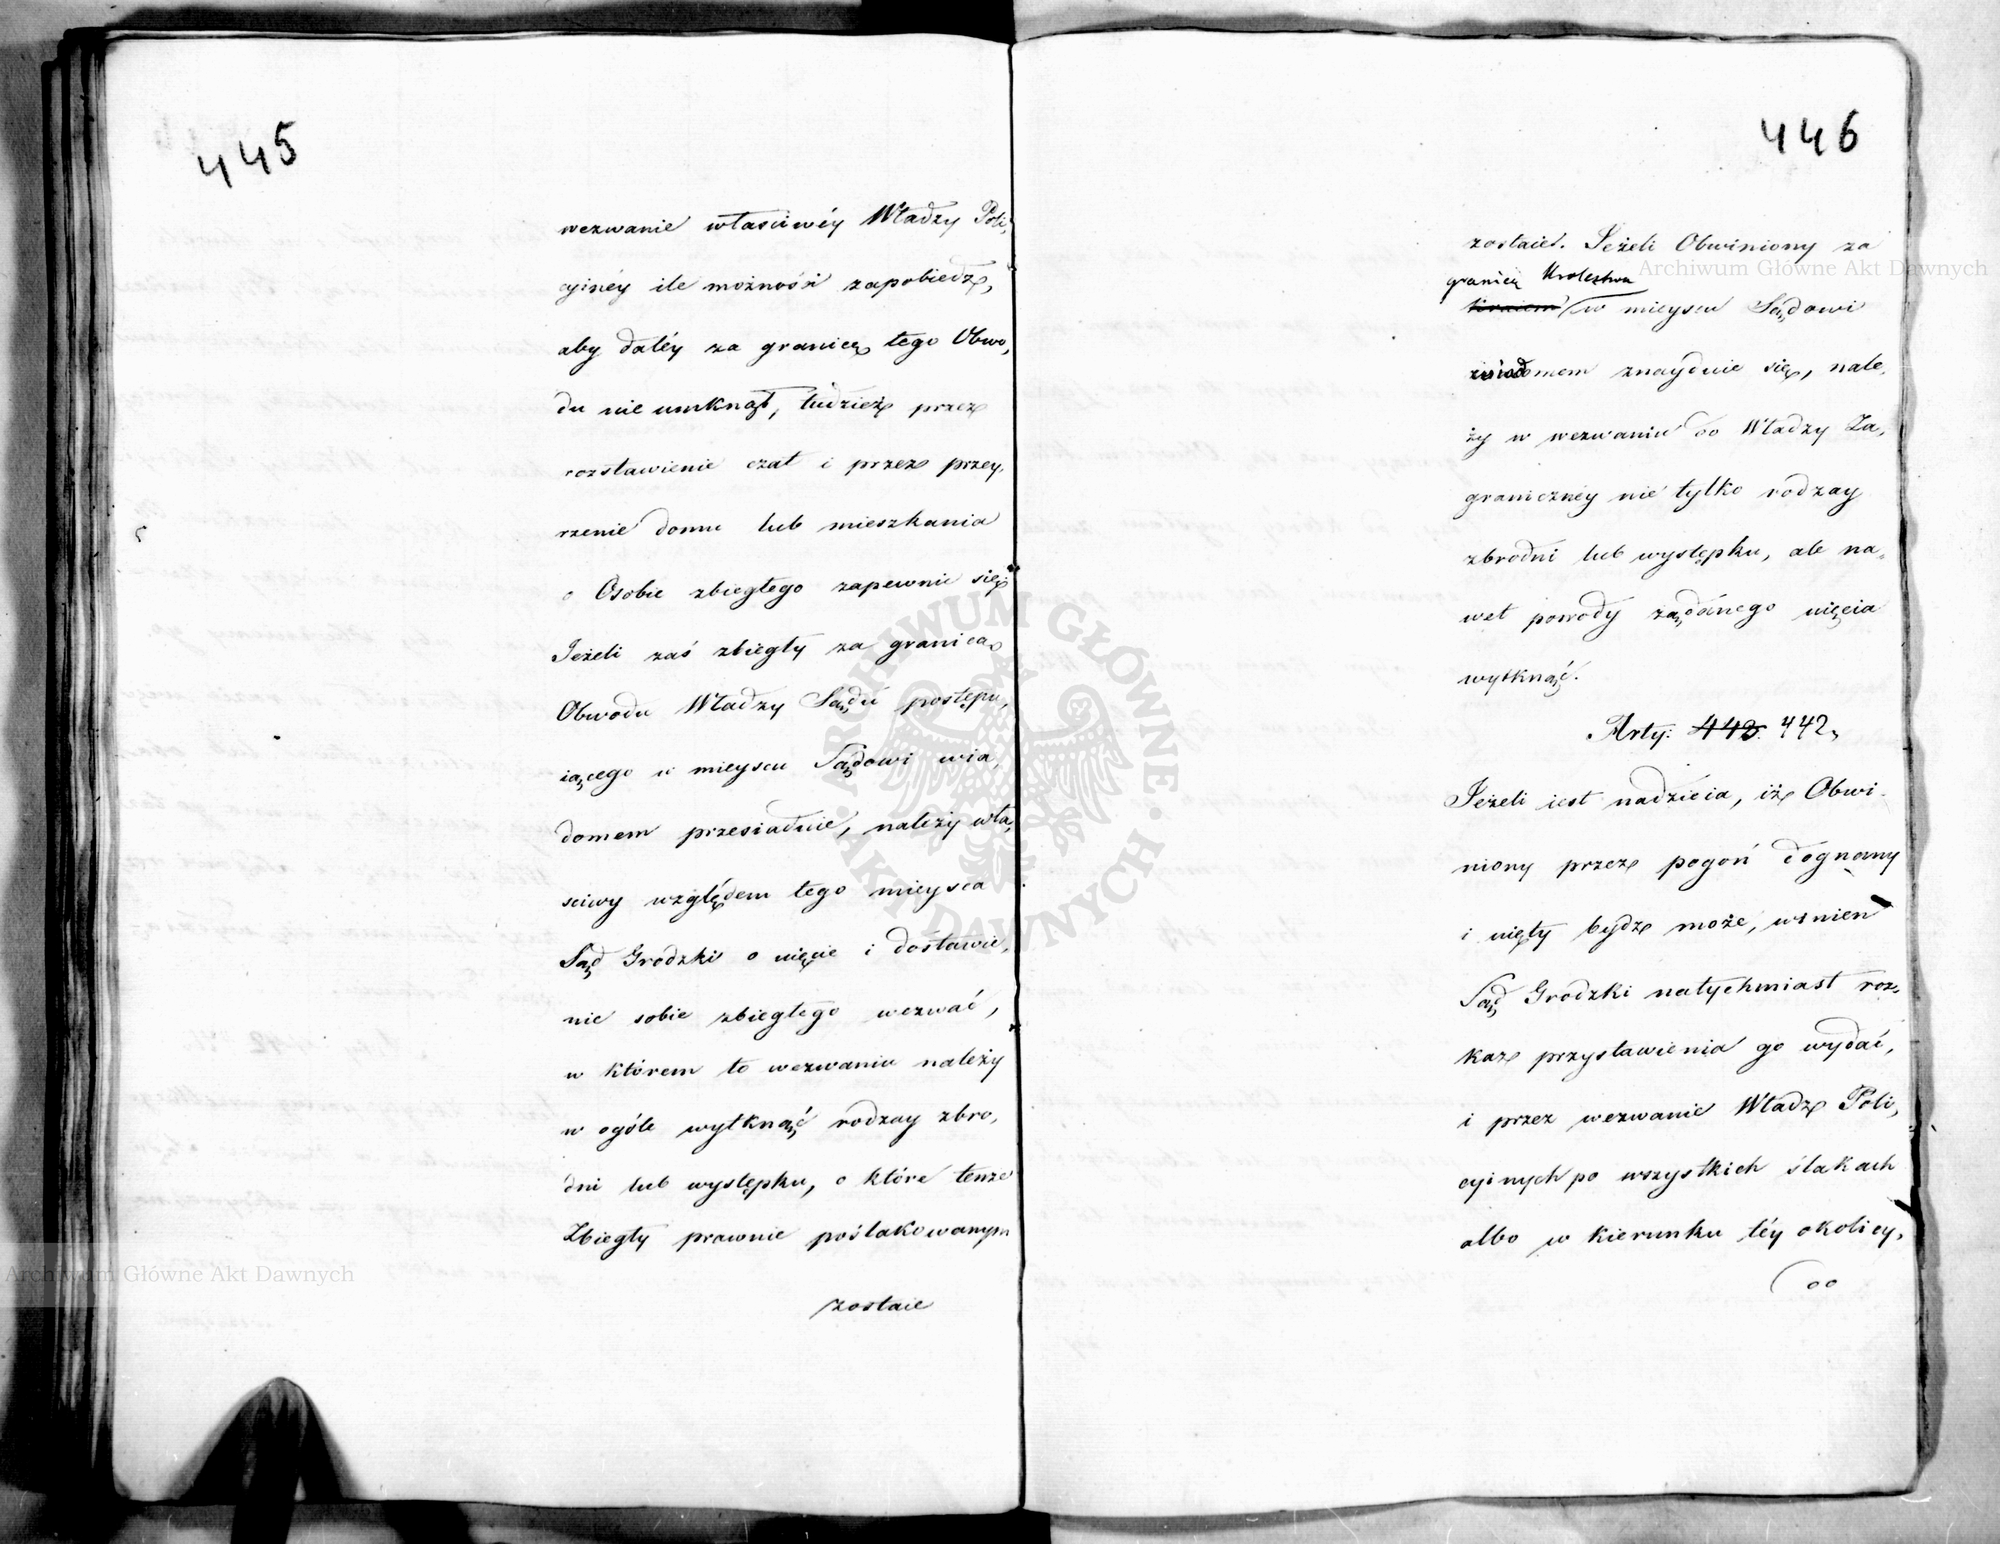 445
wezwanie właściwéy Władzy Poli,
cyinéy ile możności zapobiedz,
aby daléy za granicę tego Obwo,
du nie umknął, tudzież przez
rozstawienie czat i przez przey,
rzenie domu lub mieszkania
o Osobie zbiegłego zapewnić się.
Jeżeli zaś zbiegły za granicą
Obwodu Władzy Sądu postępu,
iącego w mieyscu Sądowi wia,
domem przesiaduie, należy wła,
sciwy względem tego mieysca
Sąd Grodzki o uięcie i dostawie,
nie sobie zbiegłego wezwać,
w którem to wezwaniu należy
w ogóle wytknąć rodzay zbro,
dni lub występku, o które tenze
Zbiegły prawnie poślakowanym
zostaie
446
zostaie. Jeżeli Obwiniony za
granicą Krolestwa
kraiem w mieyscu Sądowi
wiadomem znayduie się, nale,
ży w wezwaniu do Władzy Za,
graniczney nie tylko rodzay
zbrodni lub występku, ale na,
wet powody żądanego uięcia
wytknąć.
Arty: 443. 442.
Jeżeli iest nadzieia, iż Obwi,
niony przez pogoń dognany
i uięty bydz może, winien
Sąd Grodzki natychmiast roz,
kaz przystawienia go wydać,
i przez wezwanie Władz Poli,
cyinych po wszystkich ślakach
albo w kierunku téy okolicy,
do
ARCHIWUM GŁÓWNE AKT DAWNYCH
Archiwum Główne Akt Dawnych
Archiwum Główne Akt Dawnych